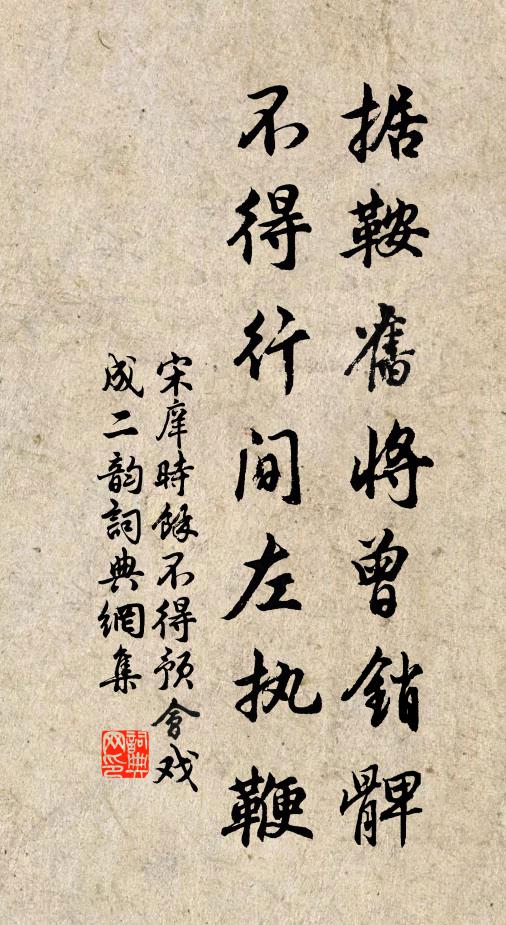 据鞍舊将曾銷髀
不得行间左执鞭
宋庠時餘不得預會戏
成二韵詞典網集
詞典网印